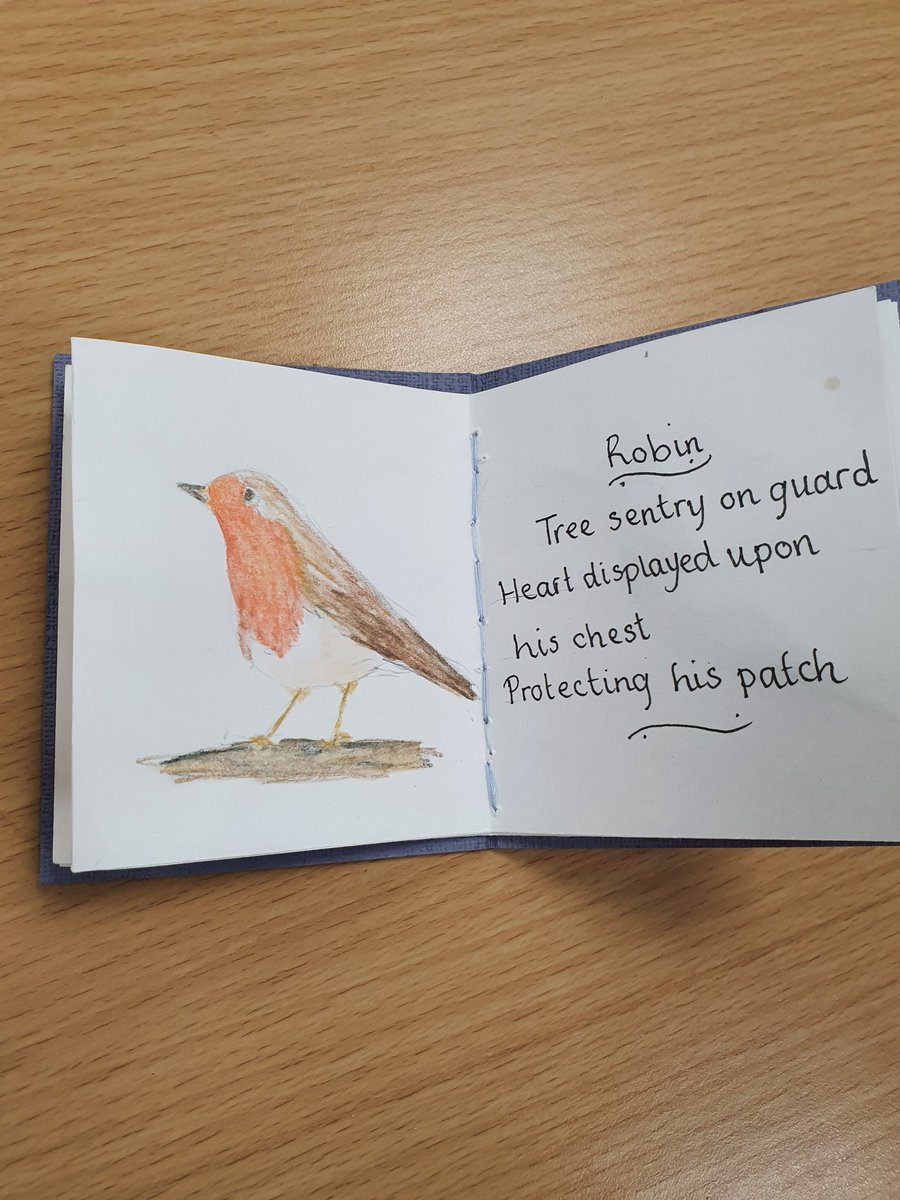 Robin
Tree sentry on guard
Heart displayed upon
his chest
Protecting his patch